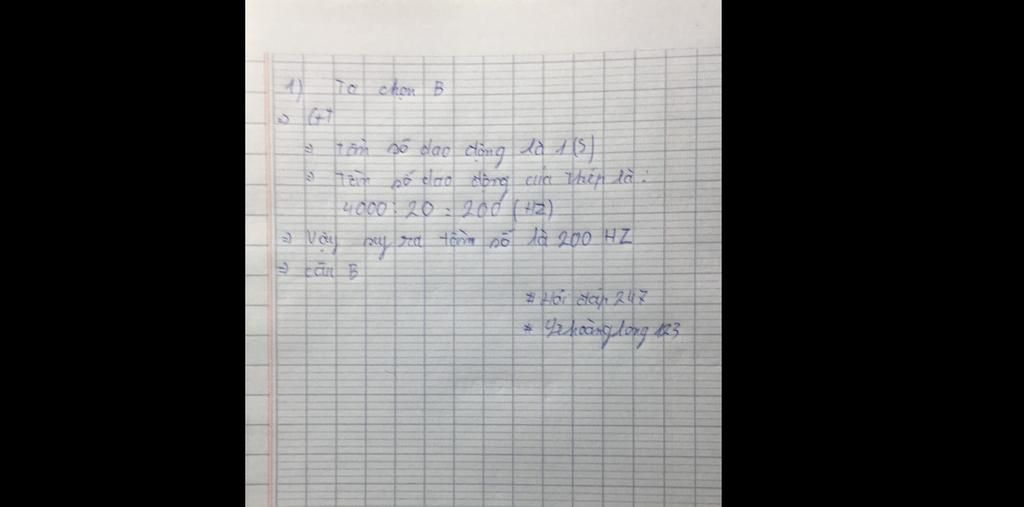 1) Ta chọn B
=> GT
=> Tần số dao động là 1(S)
=> Tần số dao động của thép là:
4000 : 20 = 200 (HZ)
=> Vậy suy ra tần số là 200 HZ
=> câu B
* Hỏi đáp 247
* hoànglong123